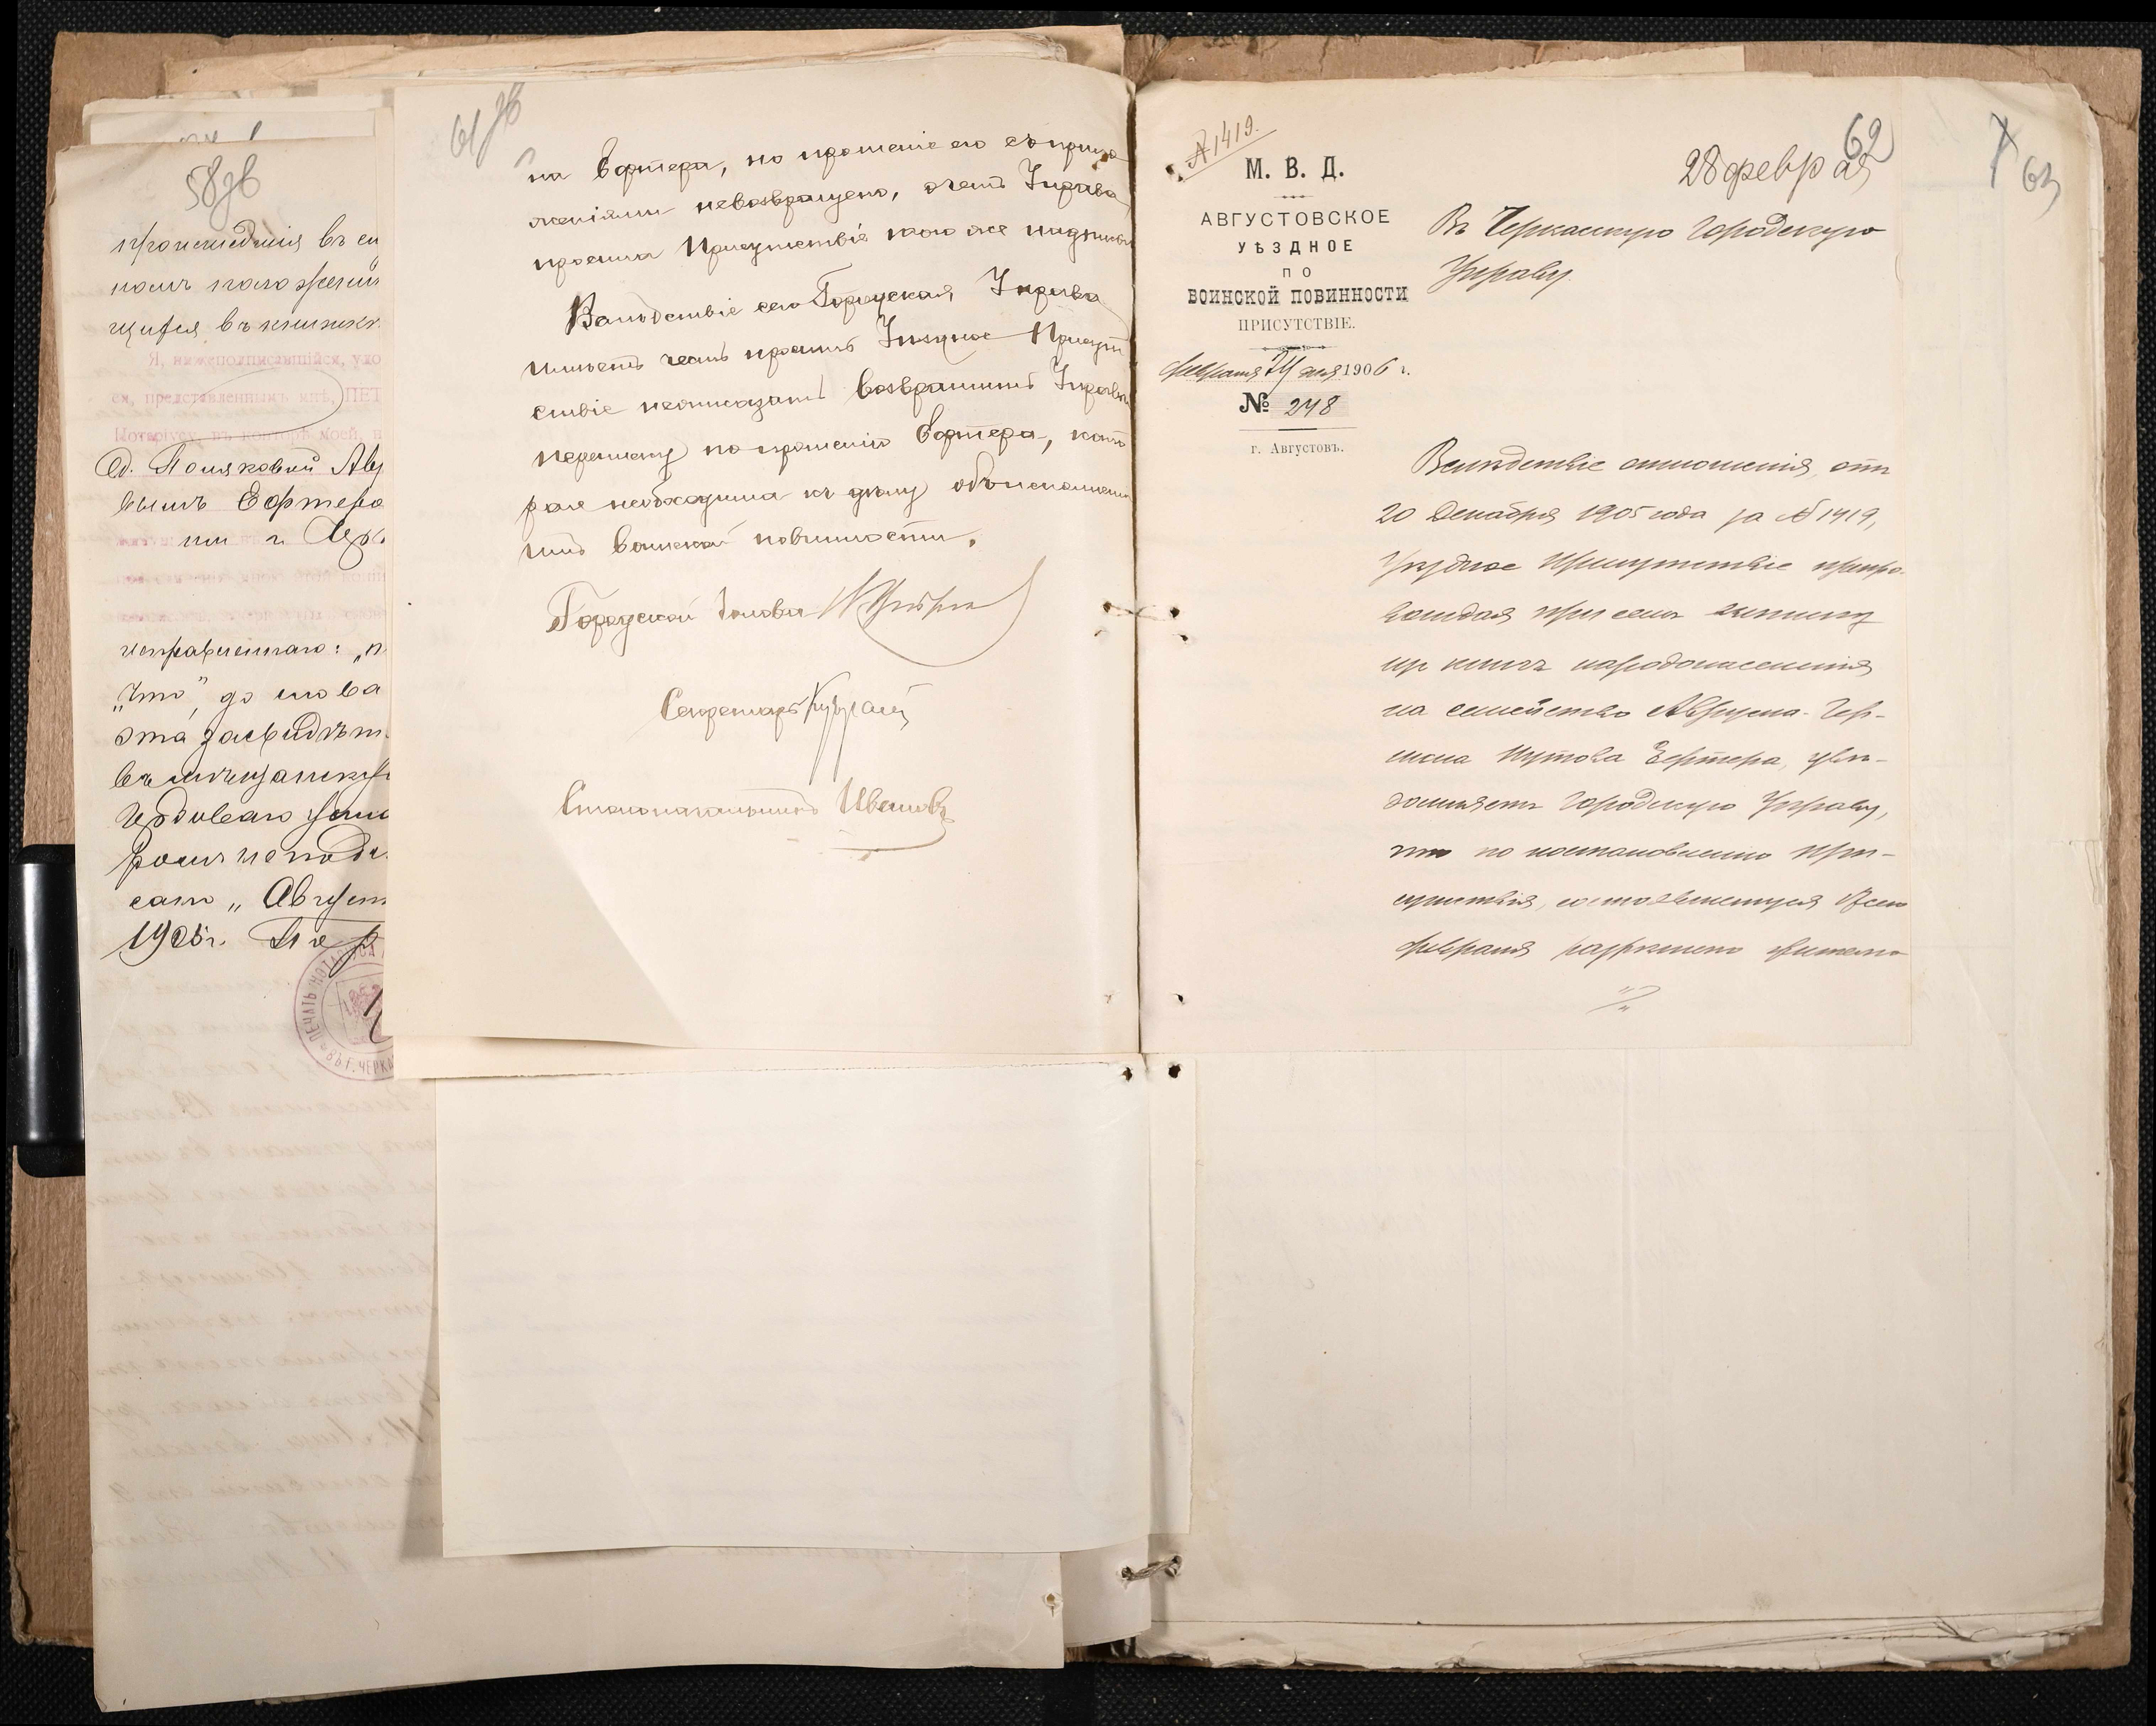 58об
происшедшія въ се
номъ положеніи
щуюся въ книжк
Я, нижеподписавшійся, удо
ся, представленнымъ мнѣ, ПЕТ
Нотаріусу, въ конторѣ моей, н
Поляковой Авг
вымъ Ефтеро
ти г. Чер
исправленнаго: „п
„что", до слова
эта засвидѣт
въ мѣщанскую
Гербоваго
ромъ не
сано „Август
1905 г.
ПЕЧАТЬ НОТА
ВЪ Г. ЧЕРКА
61 об
на Ефтера, но прошеніе его съ прило
женіями невозвращено, о чемъ Управа
просила Присутствіе тою же надписью
Вслѣдствіе сего Городская Управа
имѣетъ честь просить Уѣздное Присут
ствіе неотказать возвратить Управѣ
переписку по прошенію Ефтера, кото
рая необходима къ дѣлу объ исполнен
ніи воинской повинности.
Городской Голова
Секретарь
Столоначальникъ Ивановъ
№ 1419.
М. В. Д.
АВГУСТОВСКОЕ
УѢЗДНОЕ
ПО
ВОИНСКОЙ ПОВИННОСТИ
ПРИСУТСТВІЕ.
февраля 24 дня 1906 г.
№ 248
г. Августовъ.
28 февраля
62
63
Въ Черкасскую Городскую
Управу.
Вслѣдствіе отношенія отъ
20 Декабря 1905 года за № 1419,
Уѣздное Присутствіе препро-
вождая при семъ выписку
изъ книгъ народонаселенія
на семейство Августа-Гер-
мана Ефтера, увѣ-
домляетъ Городскую Управу,
что по постановленію При-
сутствія, состоявшемуся сего
февраля разрѣшено жителю